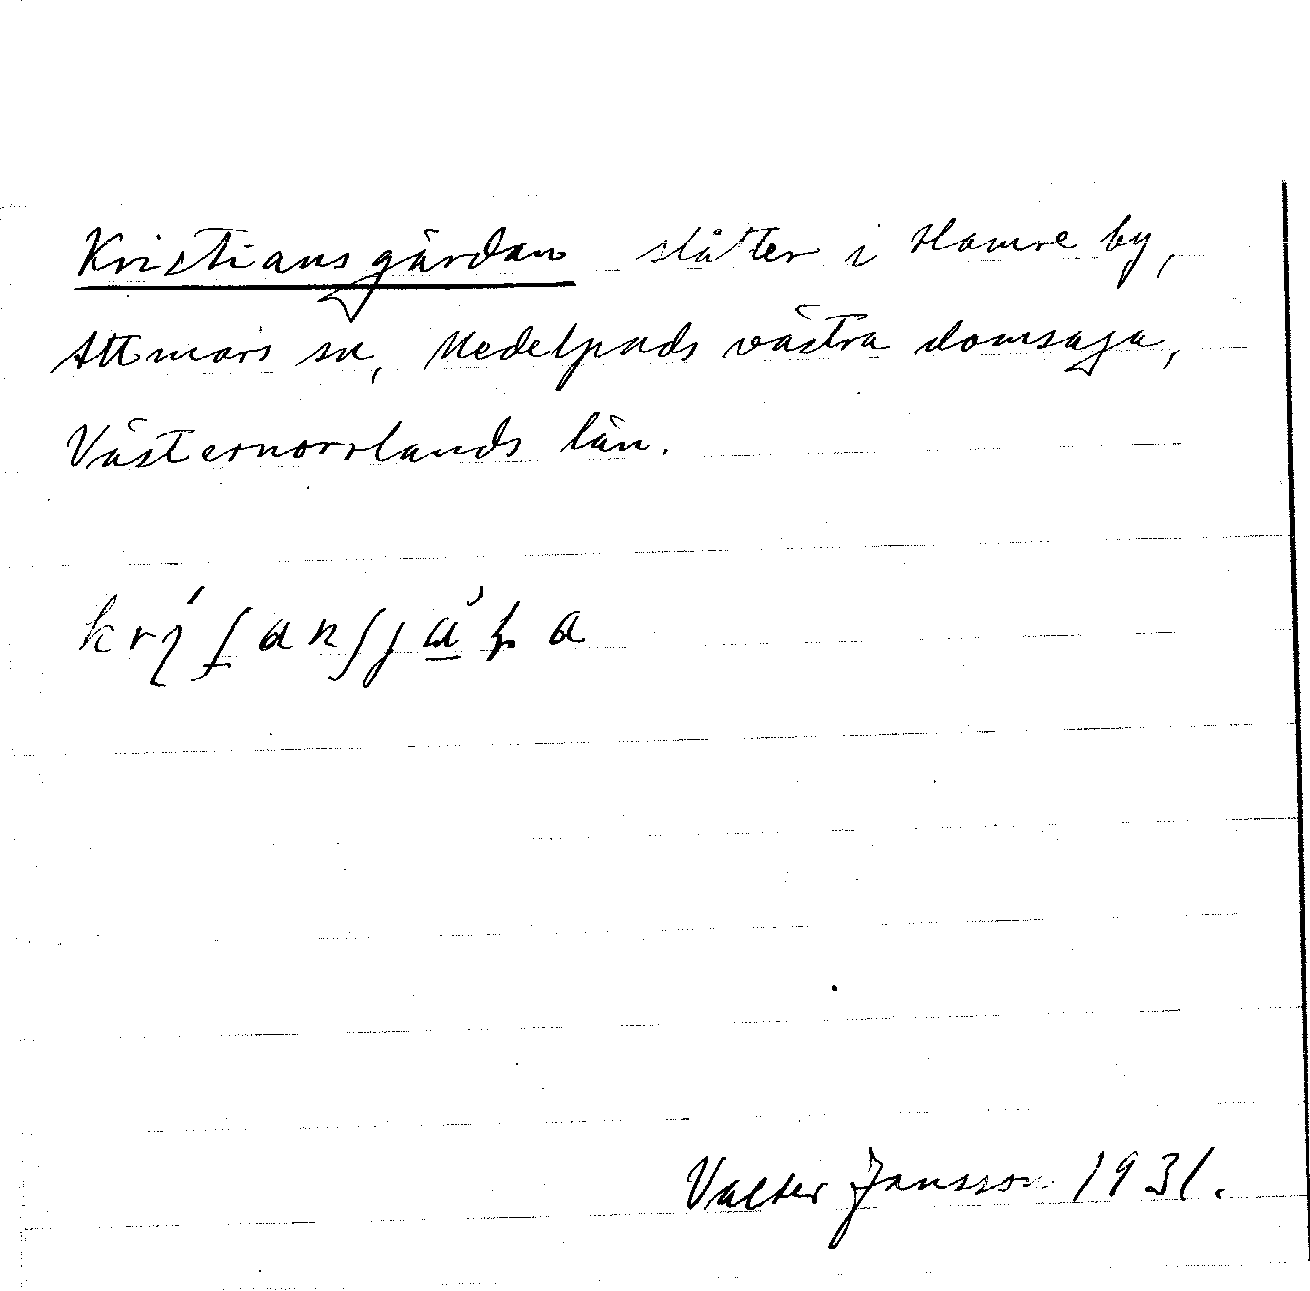 Kristiansgärdan slåtter i Hamre by,
Attmars sn, Medelpads västra domsaga,
Västernorrlands län.
Valter Jansson 1931.